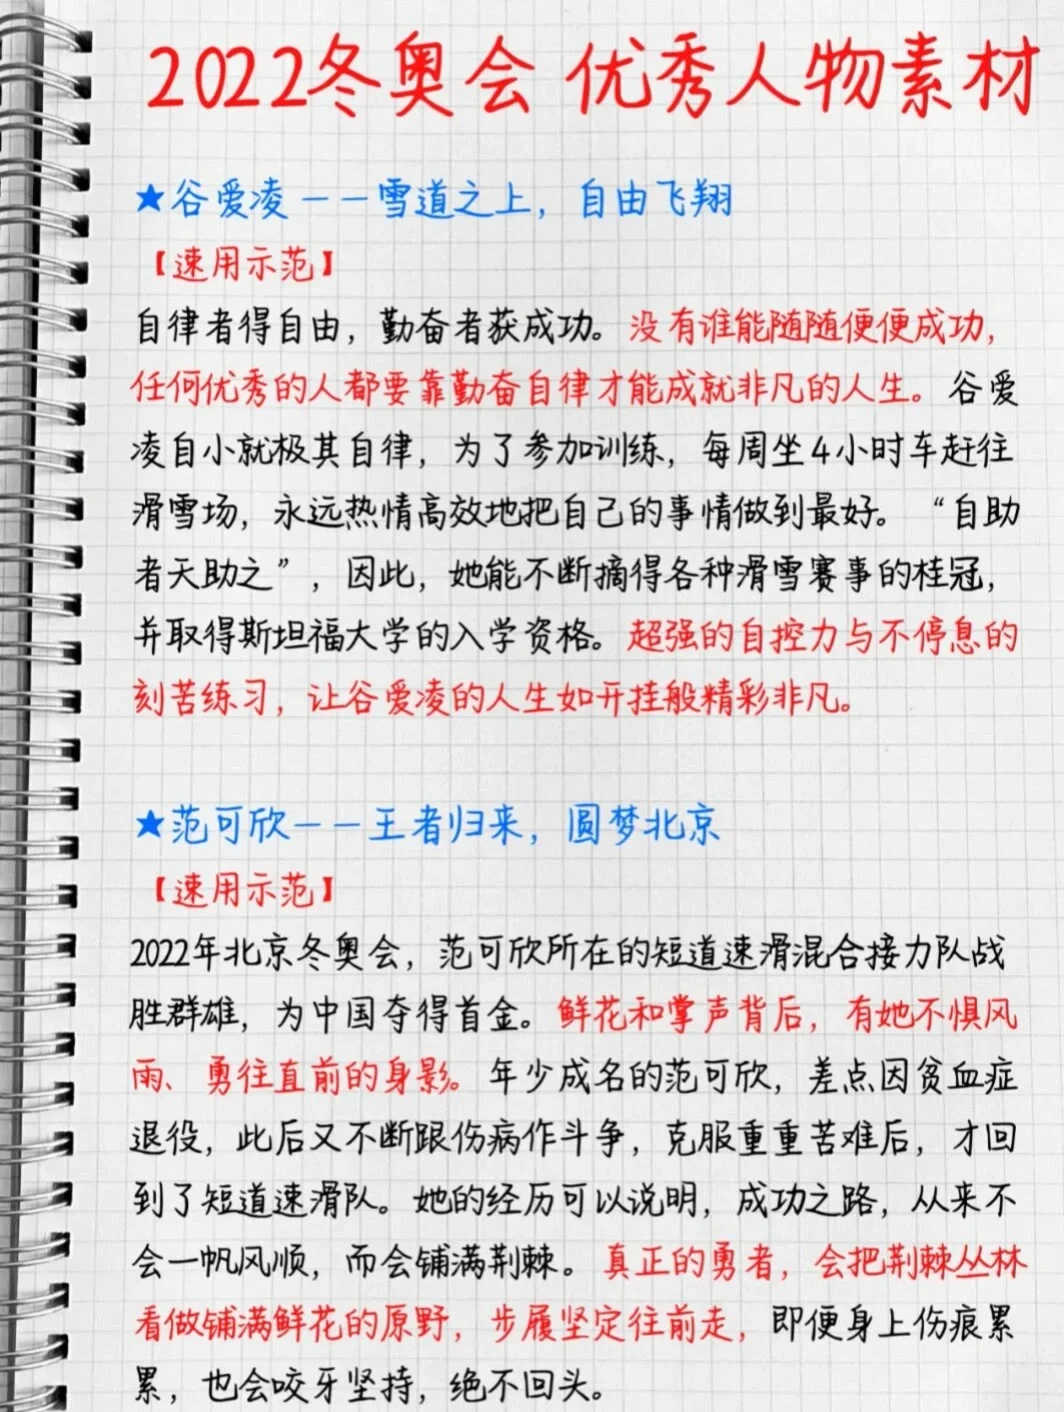 2022冬奥会 优秀人物素材
★谷爱凌——雪道之上，自由飞翔
【速用示范】
自律者得自由，勤奋者获成功。没有谁能随随便便成功，
任何优秀的人都要靠勤奋自律才能成就非凡的人生。谷爱
凌自小就极其自律，为了参加训练，每周坐4小时车赶往
滑雪场，永远热情高效地把自己的事情做到最好。“自助
者天助之”，因此，她能不断摘得各种滑雪赛事的桂冠，
并取得斯坦福大学的入学资格。超强的自控力与不停息的
刻苦练习，让谷爱凌的人生如开挂般精彩非凡。
★范可欣——王者归来，圆梦北京
【速用示范】
2022年北京冬奥会，范可欣所在的短道速滑混合接力队战
胜群雄，为中国夺得首金。鲜花和掌声背后，有她不惧风
雨、勇往直前的身影。年少成名的范可欣，差点因贫血症
退役，此后又不断跟伤病作斗争，克服重重苦难后，才回
到了短道速滑队。她的经历可以说明，成功之路，从来不
会一帆风顺，而会铺满荆棘。真正的勇者，会把荆棘丛林
看做铺满鲜花的原野，步履坚定往前走，即便身上伤痕累
累，也会咬牙坚持，绝不回头。